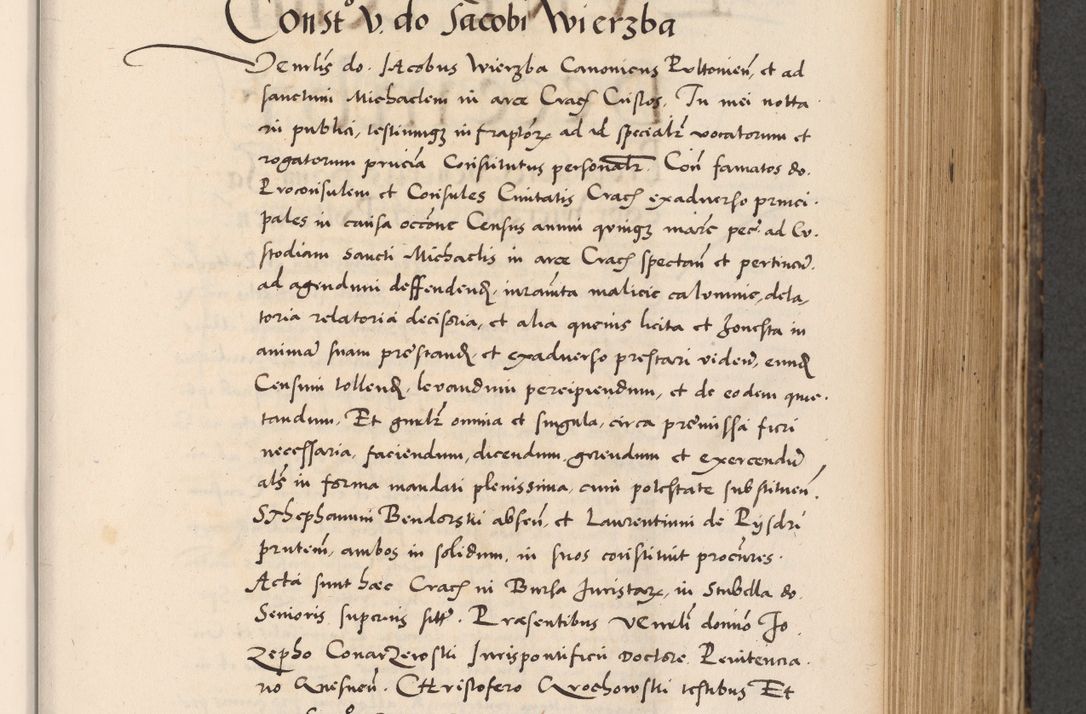 Const᷒ V. do Jacobi Wierzba
Venrlis do. Jacobus Wierzba Canonicus Pultonien̄, et ad
sanctum Michaelem in arce Crac̄ Custos. In mei notta
rii publici, testiumqꝫ infraptorꝝ ad id specialr̄ vocatorum et
rogatorum p̄ncia Constitutus personalr̄. Con̄ famatos do.
Proconsulem et Consules Civitatis Crac̄ exadverso princi
pales in causa occone Census annui quinqꝫ marc̄ pec̄ ad Cu
stodiam sancti Michaelis in arce Crac̄ spectan̄ et pertinen̄.
ad agendum deffenden̄, iuramta malicie calumnie, dela,
toria relatoria decisoria, et alia quevis licita et honesta in
animā suam prestand̄ et exadverso prestari viden̄, eund̄
Censum tollend̄, levandum percipiendum, et de eodem quie.
tandum, Et gnrlr̄ omnia et singula, circa premissa fieri
necessaria, faciendum, dicendum, gerendum et exercendū
als in forma mandati plenissima, cum potestate substituen̄.
Sthephanum Bendorski absen̄, et Laurentium de Pysdri
pruten̄, ambos in solidum, in suos constituit procūres.
Acta sunt haec Crac̄ in Bursa Juristarꝝ, in Stubella do.
Senioris superius sitt̄. Praesentibus Venrli domno Jo
zepho Conarzewski Jurispontificii Doctore Penitencia.
rio Gnesnen̄. Christofero Grochowski testibus Et